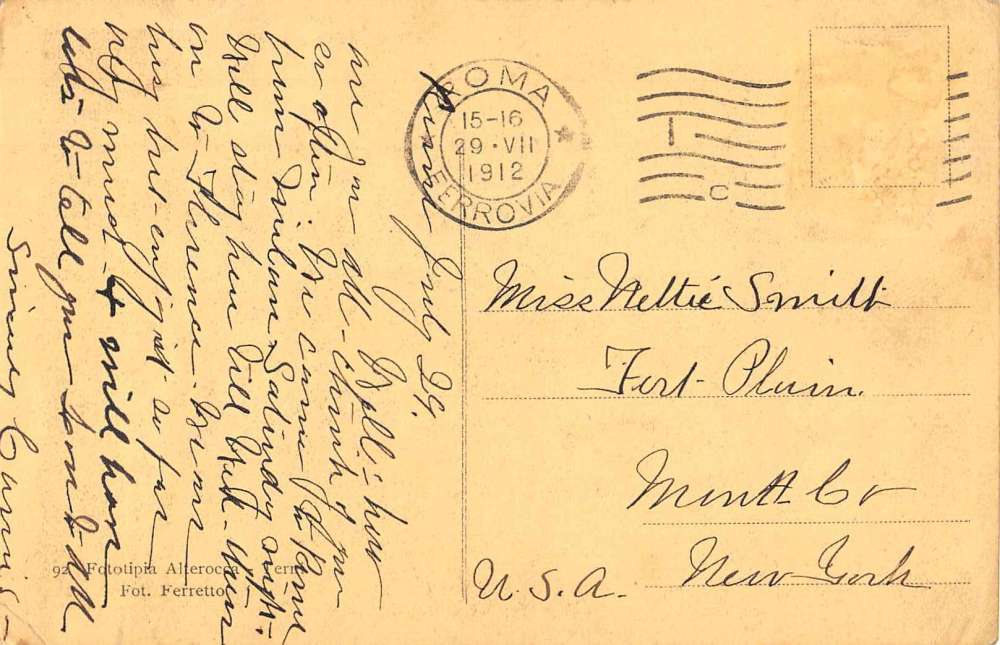 Rome July 29.
Well: how
are you all - I think of you
so often: We came to Rome
from Milan Saturday night.
Will stay here till Wed. then
on to Florence. We are
busy but enjoy it as far
& will have
lots to tell you
ROMA
15-16
29·VII
1912
FERROVIA
C
Miss Nettie Smith
Fort Plain.
Montt Co
New York
U.S.A.
92 Fototipia Alterocca - Terni
Fot. Ferretto